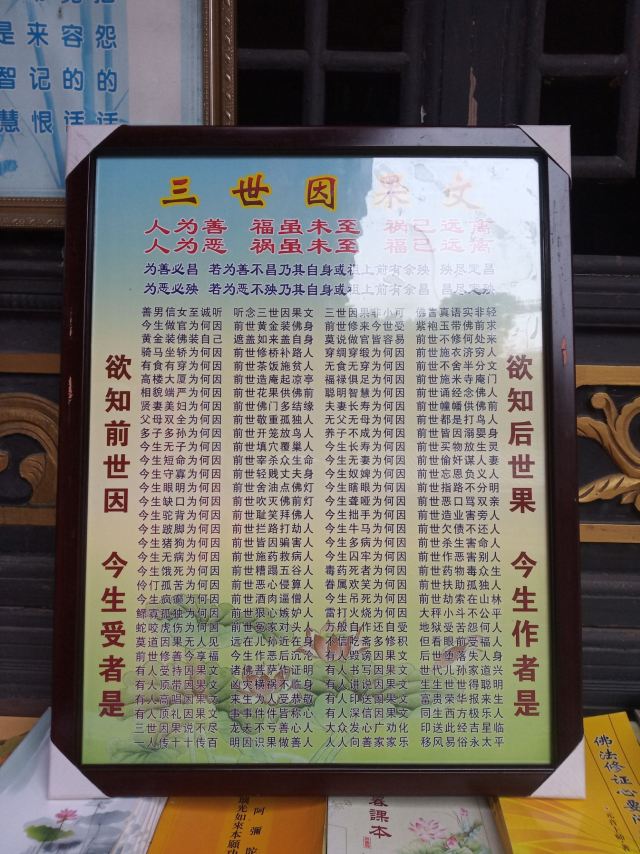 是来容怨
智记的的
慧恨话话
三世因果文
人为善 福虽未至 祸已远离
人为恶 祸虽未至 福已远离
为善必昌 若为善不昌乃其自身或祖上前有余殃 殃尽定昌
为恶必殃 若为恶不殃乃其自身或祖上前有余昌 昌尽定殃
欲知前世因 今生受者是
善男信女至诚听 听念三世因果文 三世因果非小可 佛言真语实非轻
今生做官为何因 前世黄金装佛身 前世修来今世受 紫袍玉带佛前求
黄金装佛装自己 遮盖如来盖自身 莫说做官皆容易 前世不修何处来
骑马坐轿为何因 前世修桥补路人 穿绸穿缎为何因 前世施衣济穷人
有食有穿为何因 前世茶饭施贫人 无食无穿为何因 前世不舍半分文
高楼大厦为何因 前世造庵起凉亭 福禄俱足为何因 前世施米寺庵门
相貌端严为何因 前世花果供佛前 聪明智慧为何因 前世诵经念佛人
贤妻美妇为何因 前世佛门多结缘 夫妻长寿为何因 前世幢幡供佛前
父母双全为何因 前世敬重孤独人 无父无母为何因 前世都是打鸟人
多子多孙为何因 前世开笼放鸟人 养子不成为何因 前世皆因溺婴身
今生无子为何因 前世填穴覆巢人 今生长寿为何因 前世买物放生灵
今生短命为何因 前世宰杀众生命 今生无妻为何因 前世偷奸谋人妻
今生守寡为何因 前世轻贱丈夫身 今生奴婢为何因 前世忘恩负义人
今生眼明为何因 前世舍油点佛灯 今生瞎眼为何因 前世指路不分明
今生缺口为何因 前世吹灭佛前灯 今生聋哑为何因 前世恶口骂双亲
今生驼背为何因 前世耻笑拜佛人 今生拙手为何因 前世造业害旁人
今生跛脚为何因 前世拦路打劫人 今生牛马为何因 前世欠债不还人
今生猪狗为何因 前世皆因骗害人 今生多病为何因 前世杀生害命人
今生无病为何因 前世施药救病人 今生囚牢为何因 前世作恶害别人
今生饿死为何因 前世糟蹋五谷人 毒药死者为何因 前世药物毒众生
伶仃孤苦为何因 前世恶心侵算人 眷属欢笑为何因 前世扶助孤独人
今生疯癫为何因 前世酒肉逼僧人 今生吊死为何因 前世劫索在山林
鳏寡孤独为何因 前世狠心嫉妒人 雷打火烧为何因 大秤小斗不公平
蛇咬虎伤为何因 前世冤家对头人 万般自作还自受 地狱受苦怨何人
莫道因果无人见 远在儿孙近在身 不信吃斋多修积 但看眼前受福人
前世修善今享福 今生作恶后沉沦 有人毁谤因果文 后世堕落失人身
有人受持因果文 诸佛菩萨作证明 有人书写因果文 世代儿孙家道兴
有人带因果文 凶灾横祸不临身 有人讲说因果文 生生世世得聪明
有人高唱因果文 来生为人受恭敬 有人印送因果文
有人顶礼因果文 事事件件皆称心 有人深信因果文 同生西方极乐人
三世因果说不尽 龙天不亏善心人 大众发心广劝化 印送
一人传十十传百 明因识果做善人 人人向善家家乐 移风易俗太平
欲知后世果 今生作者是
阿弥陀
课本
佛法修证心要